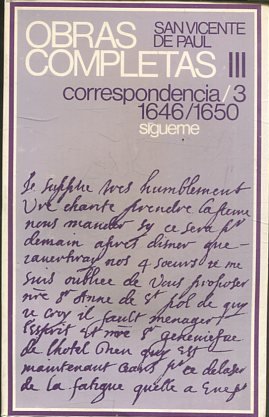 OBRAS
COMPLETAS III
SAN VICENTE
DE PAUL
correspondencia/3
1646/1650
sígueme
Je supplie tres humblement
Vre charite prendre la peine
nous mander sy ce sera pr
demain apres disner que
nos 4 soeurs je me
suis oubliee de vous proposer
nre Sr Anne de St pol de quy
je croy il fault menager
l'esprit et nre Sr geneviefve
de l'hotel Dieu quy est
maintenant ceans pr ce delaser
de la fatigue qu'elle a